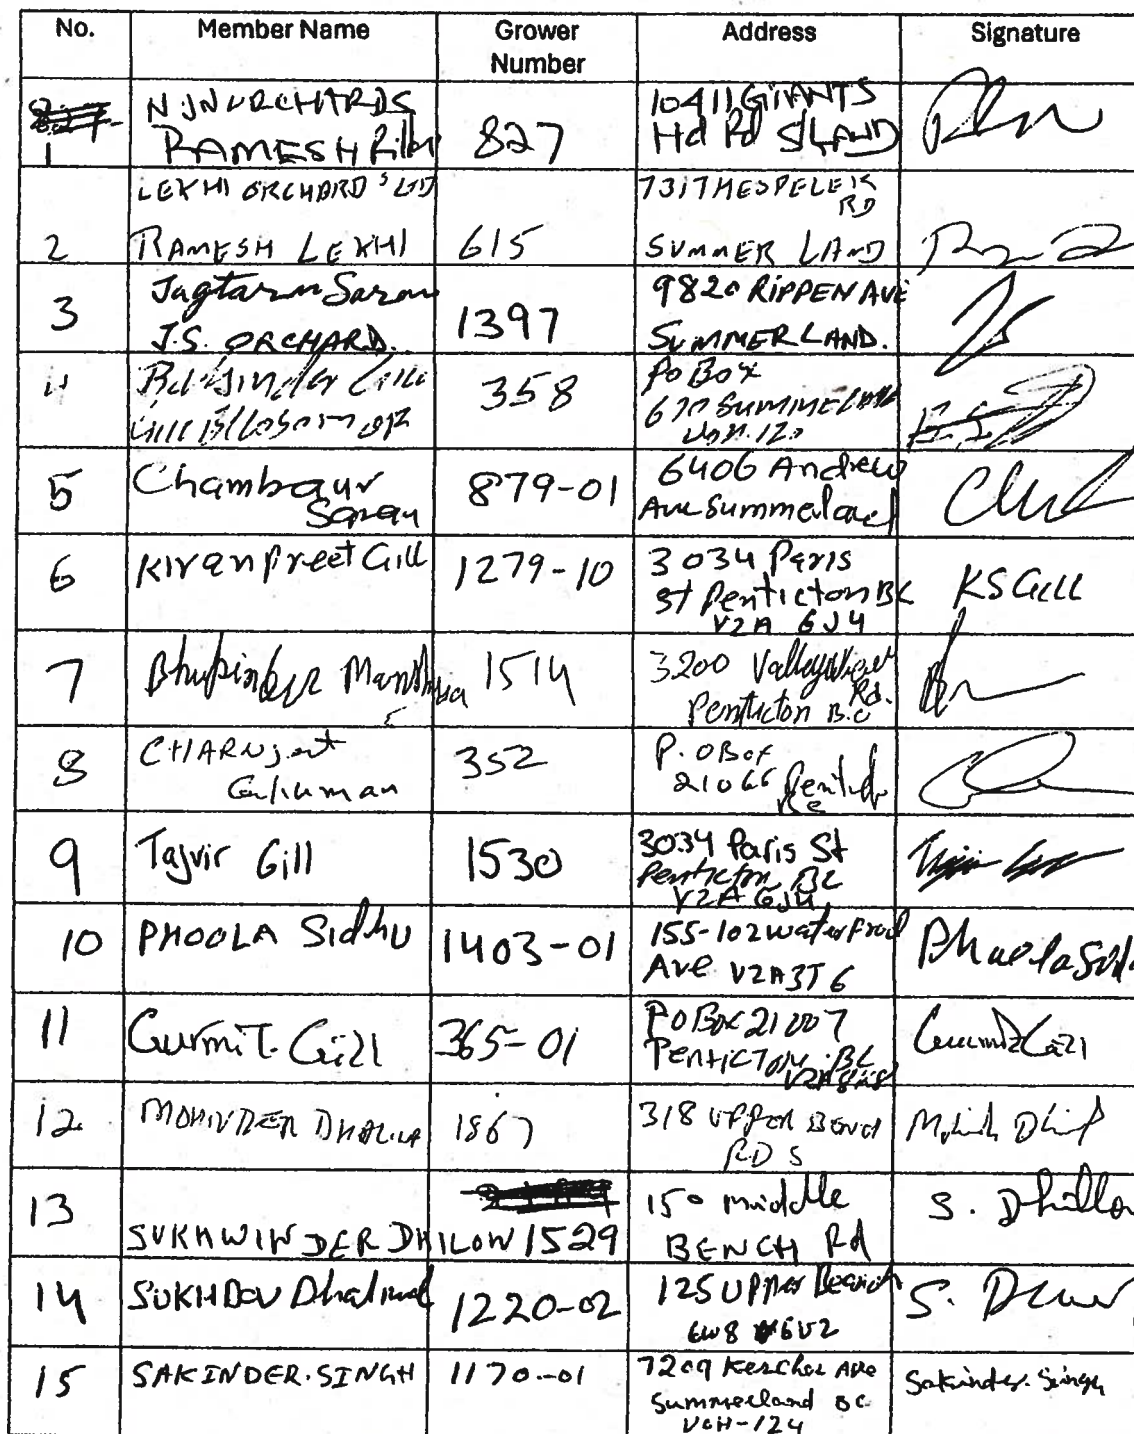 No. Member Name Grower Number Address Signature
1 N.J.N ORCHARDS RAMESH 827 10411 GIANTS Hd Rd S/LAND
2 LEKHI ORCHARD'S LTD RAMESH LEKHI 615 7317 HESPELER RD SUMMER LAND
3 Jagtarn Saran J.S. ORCHARD. 1397 9820 RIPPEN AVE SUMMERLAND.
4 358 PO BOX
5 Chambaur Saran 879-01 6406 Andrew Ave Summerland
6 Kiranpreet Gill 1279-10 3034 Paris St Penticton BC V2A 6J4 KS Gill
7 Bhupinder 1514 3200 Valleyview Rd. Penticton B.C
8 CHARNjeet 352 P.O Box 21066
9 Tajvir Gill 1530 3034 Paris St Penticton BC V2A 6J4
10 PHOOLA Sidhu 1403-01 155-102 Ave V2A3T6 Phoola
11 Gurmit Gill 365-01 PO Box 21007 PENTICTON BC
12 MOHINDER 1867 318 UPPER BENCH RD S
13 SUKHWINDER DHILON 1529 150 middle BENCH Rd S. Dhillon
14 SUKHDEV 1220-02 125 Upper Bench
15 SAKINDER.SINGH 1170-01 Ave Summerland BC Sakinder. Singh